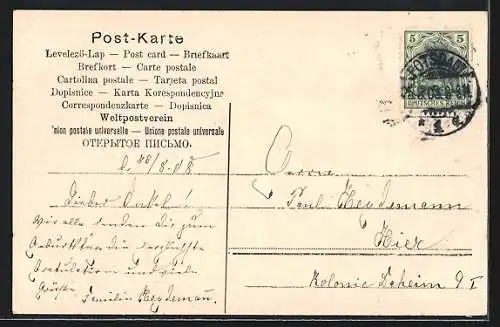 Post-Karte
Levelező-Lap — Post card — Briefkaart
Brefkort — Carte postale
Cartolina postale — Tarjeta postal
Dopisnice — Karta Korespondencyjna
Correspondenzkarte — Dopisnica
Weltpostverein
Union postale universelle — Unione postale universale
ОТКРЫТОЕ ПИСЬМО.
5 5
POTSDAM
DEUTSCHES REICH
* 1
Lieber Onkel!
Wir alle senden dir zum
Geburtstag die herzlichste
Gratulation und viele
Grüße
Familie Heydemann.
Herrn
Paul Heydemann
Hier
Kolonie Daheim